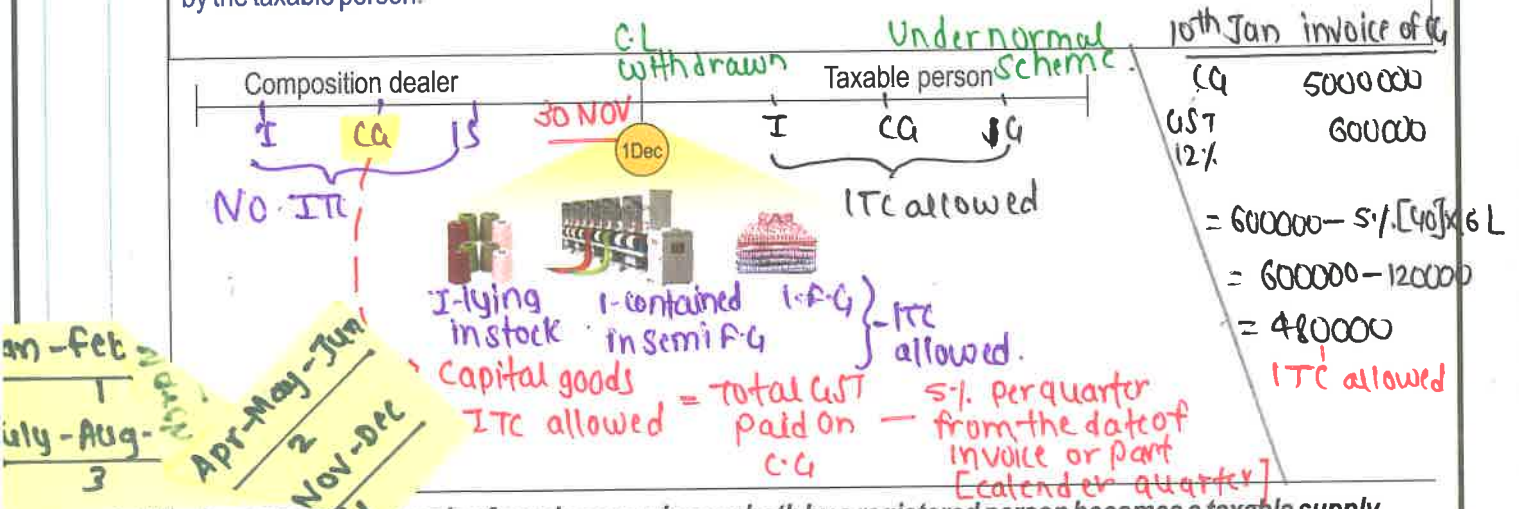 by the taxable person.
C.L
withdrawn
Under normal
Scheme.
Composition dealer
Taxable person
I CG IS
30 NOV
1Dec
I CG IS
NO ITC
ITC allowed
I-lying
in stock
I-contained
in semi F.G
I-F-G
ITC
allowed.
Capital goods
ITC allowed
= Total GST
Paid on
C.G
- 5% per quarter
from the date of
invoice or part
[calender quarter]
10th Jan invoice of CG
CG 5000000
GST 600000
12%
= 600000 - 5%.[40]x 6 L
= 600000 - 120000
= 480000
ITC allowed
an-feb
1
Apr-May-Jun
2
uly-Aug-
3
Nov-Dec
registered person becomes a taxable supply